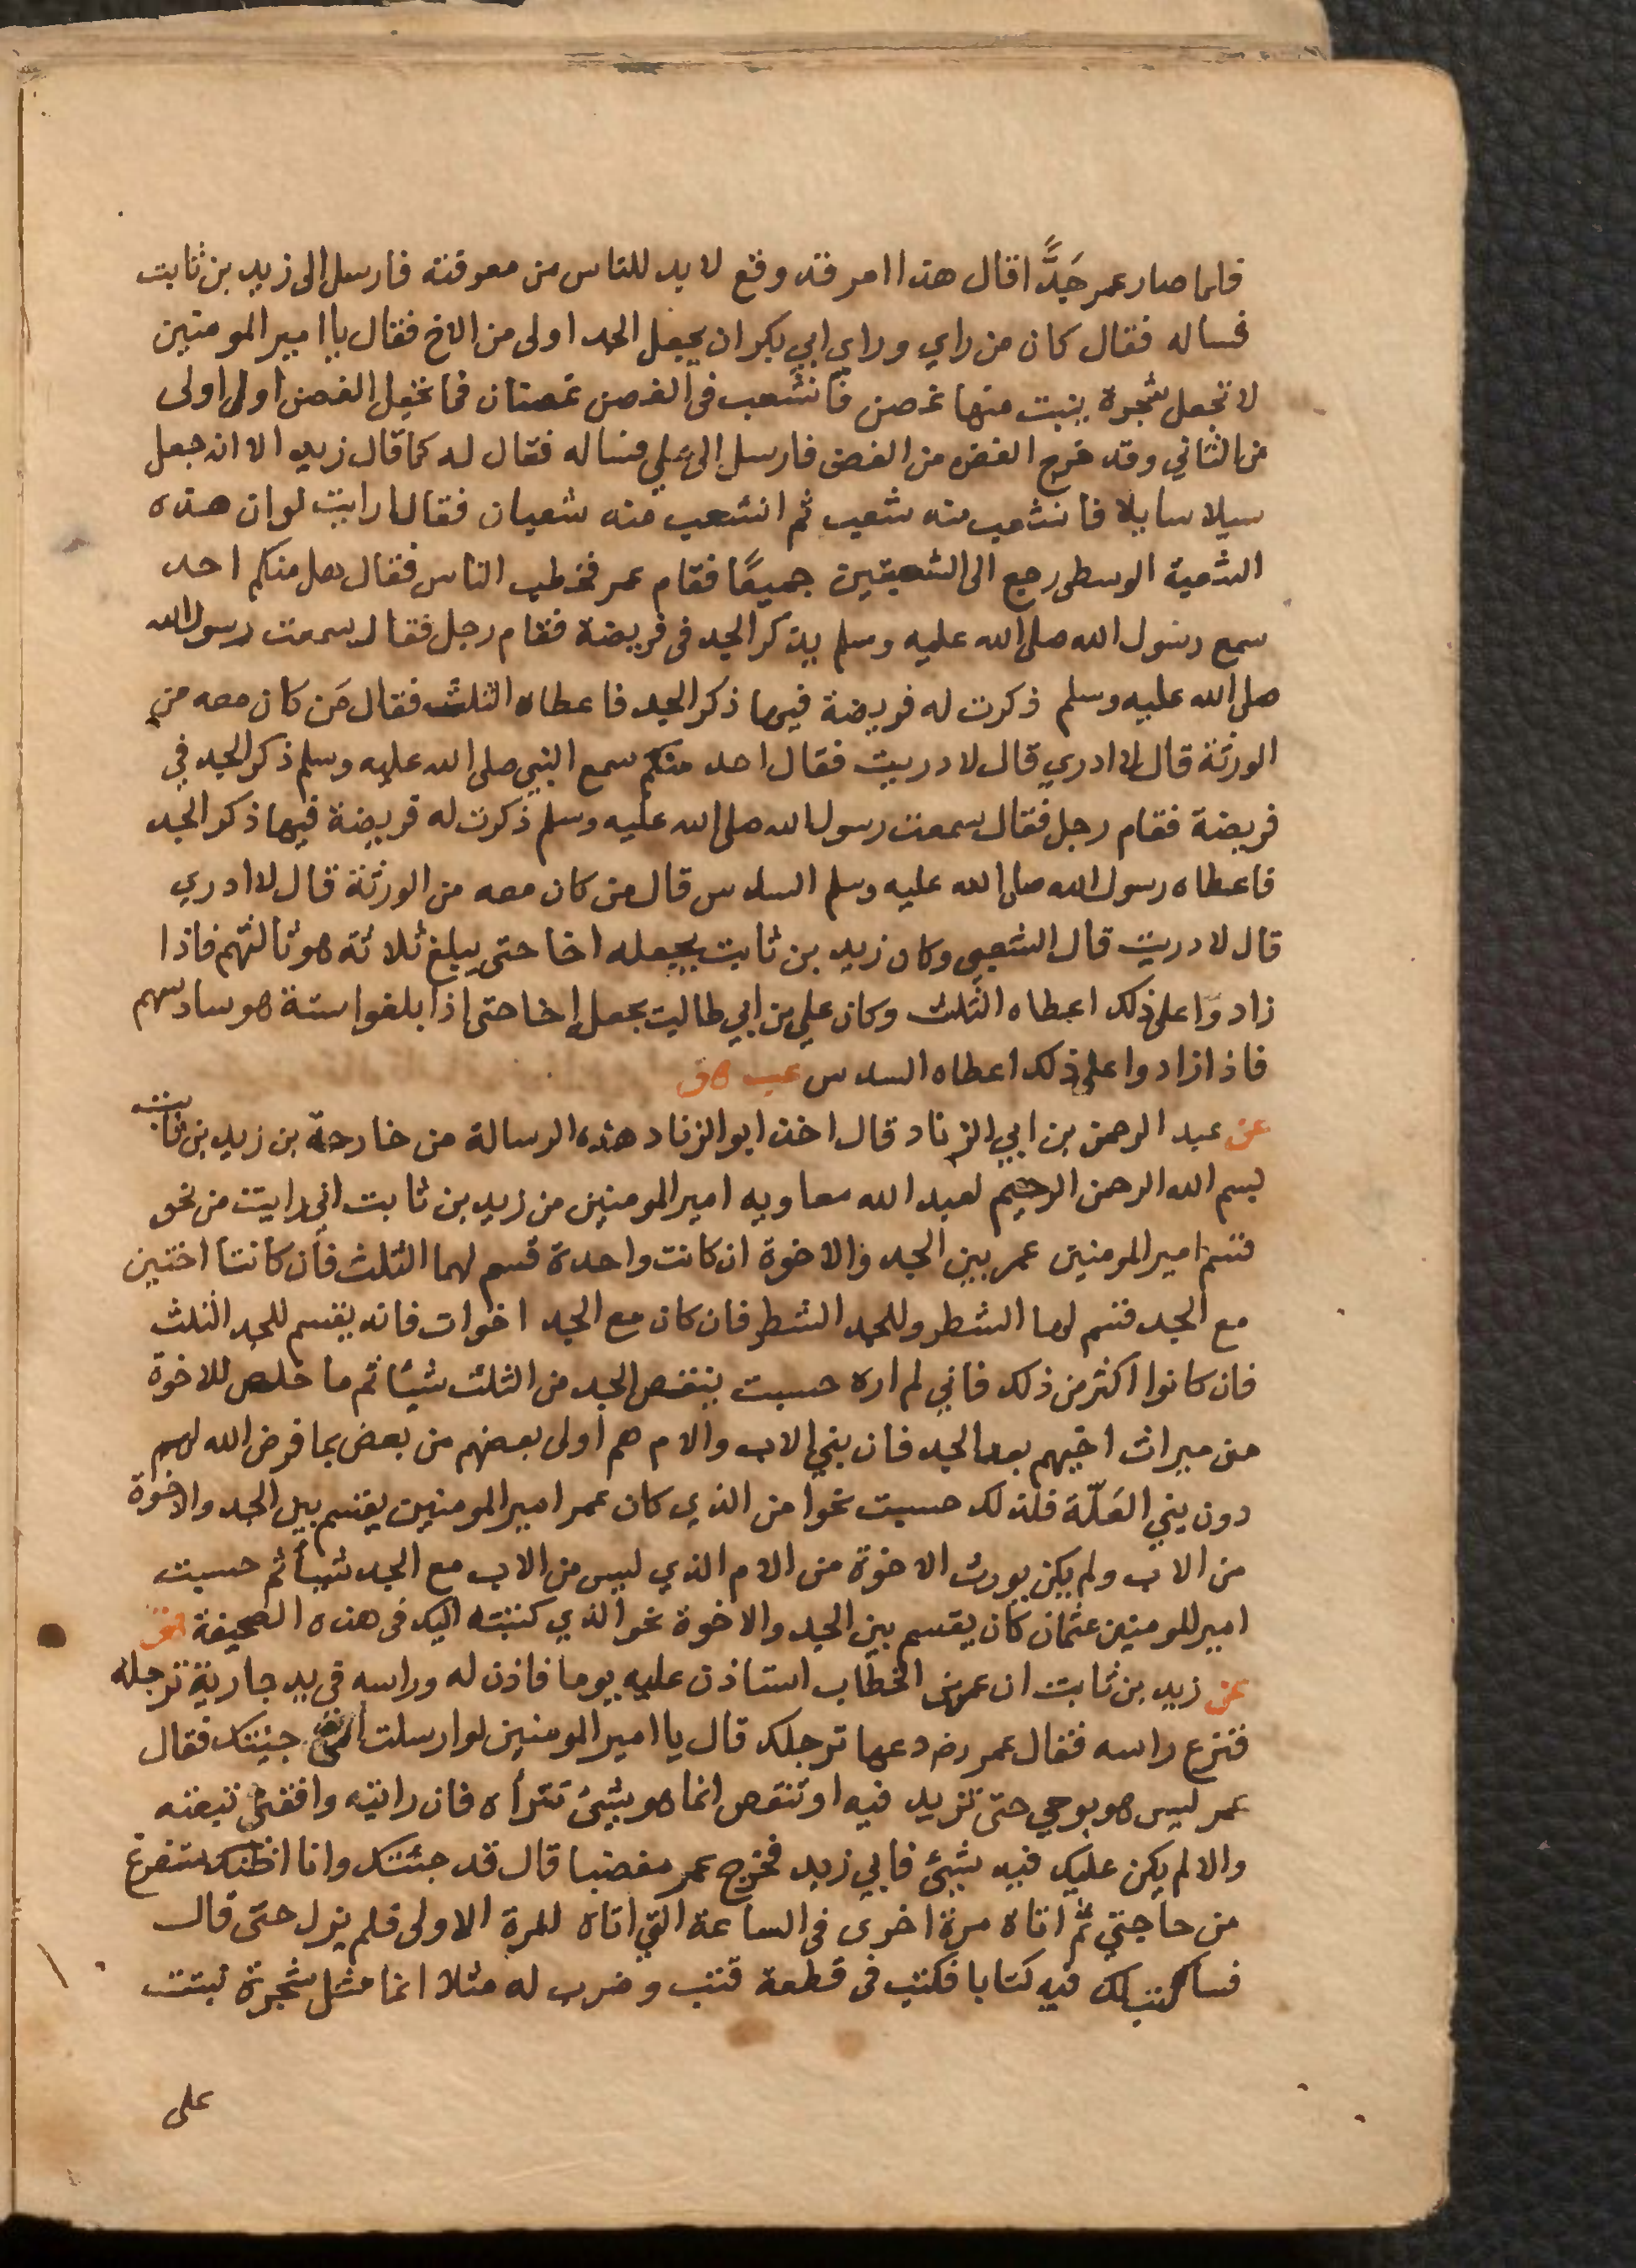 فلما صار عمر جَدًّا قال هذا امر قد وقع لا بد للناس من معرفته فارسل الى زيد بن ثابت
فساله فقال كان من راي وراي ابي بكر ان يجعل الجد اولى من الاخ فقال يا امير المومنين
لا تجعل شجرة ينبت منها غصن فانشعب في الغصن غصنان فما تجعل الغصن اولى اولى
من الثاني وقد خرج الغصن من الغصن فارسل الى علي فساله فقال له كما قال زيد الا انه جعل
سيلا سايلا فانشعب منه شعب ثم انشعب منه شعبان فقال ارايت لو ان هذه
الشعبة الوسطى رجع الى الشعبتين جميعًا فقام عمر فخطب الناس فقال هل منكم احد
سمع رسول الله صلى الله عليه وسلم يذكر الجد في فريضة فقام رجل فقال سمعت رسول الله
صلى الله عليه وسلم ذكرت له فريضة فيها ذكر الجد فاعطاه الثلث فقال مَن كان معه من
الورثة قال لا ادري قال لا دريت فقال احد منكم سمع النبي صلى الله عليه وسلم ذكر الجد في
فريضة فقام رجل فقال سمعت رسول الله صلى الله عليه وسلم ذكرت له فريضة فيها ذكر الجد
فاعطاه رسول الله صلى الله عليه وسلم السدس قال من كان معه من الورثة قال لا ادري
قال لا دريت قال الشعبي وكان زيد بن ثابت يجعله اخا حتى يبلغ ثلاثة هو ثالثهم فاذا
زادوا على ذلك اعطاه الثلث وكان علي بن ابي طالب يجعل اخا حتى اذا بلغوا ستة هو سادسهم
فاذا زادوا على ذلك اعطاه السدس عب هق
عن عبد الرحمن بن ابي الزناد قال اخذ ابو الزناد هذه الرسالة من خارجة بن زيد بن ثابت
بسم الله الرحمن الرحيم لعبد الله معاويه امير المومنين من زيد بن ثابت اني رايت من نحو
قسم امير المومنين عمر بين الجد والاخوة ان كانت واحدة قسم لهما الثلث فان كانتا اختين
مع الجد قسم لهما الشطر وللجد الشطر فان كان مع الجد اخوات فانه يقسم للجد الثلث
فان كانوا اكثر من ذلك فاني لم اره حسبت ينقص الجد من الثلث شيئا ثم ما خلص للاخوة
من ميراث اخيهم بعد الجد فان بني الاب والام هم اولى بعضهم من بعض بما فرض الله لهم
دون بني العَلّة فلذلك حسبت نحوا من الذي كان عمر امير المومنين يقسم بين الجد والاخوة
من الاب ولم يكن يورث الاخوة من الام الذي ليس من الاب مع الجد شيأ ثم حسبت
امير المومنين عثمان كان يقسم بين الجد والاخوة نحو الذي كتبته اليك في هذه الصحيفة هق
عن زيد بن ثابت ان عمر بن الخطاب استاذن عليه يوما فاذن له وراسه في يد جارية ترجله
فنزع راسه فقال عمر رضـ دعها ترجلك قال يا امير المومنين لو ارسلت الي جيئتك فقال
عمر ليس هو بوحي حتى تزيد فيه او تنقص انما هو بشيئ تتراه فان رايته وافقني تبعته
والا لم يكن عليك فيه شيئ فابي زيد فخرج عمر مغضبا قال قد جئتك وانا اظنك ستفرغ
من حاجتي ثم اتاه مرة اخرى في الساعة التي اتاه المرة الاولى فلم يزل حتى قال
فساكتب لك فيه كتابا فكتب في قطعة قتب وضرب له مثلا انما مثل شجرة نبتت
على